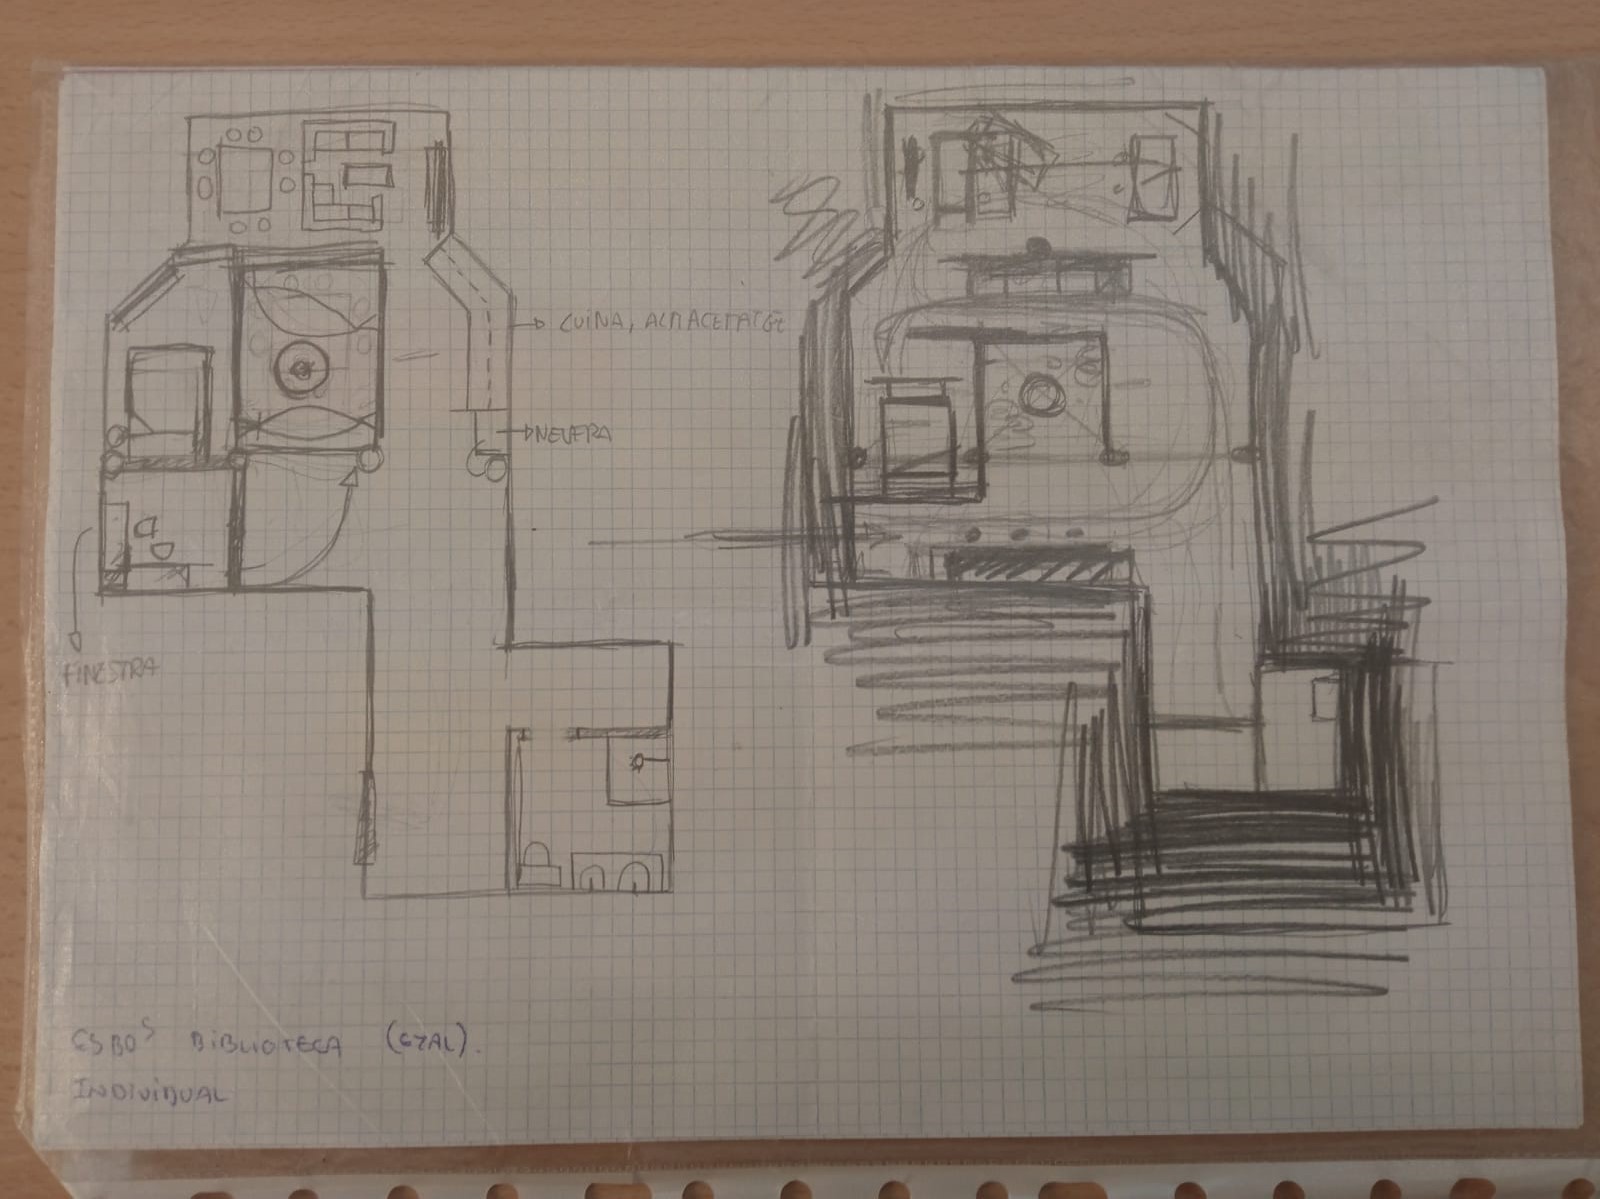 CUINA, ALMACENATGE
NEVERA
FINESTRA
ESBOS BIBLIOTECA (GRAL).
INDIVIDUAL